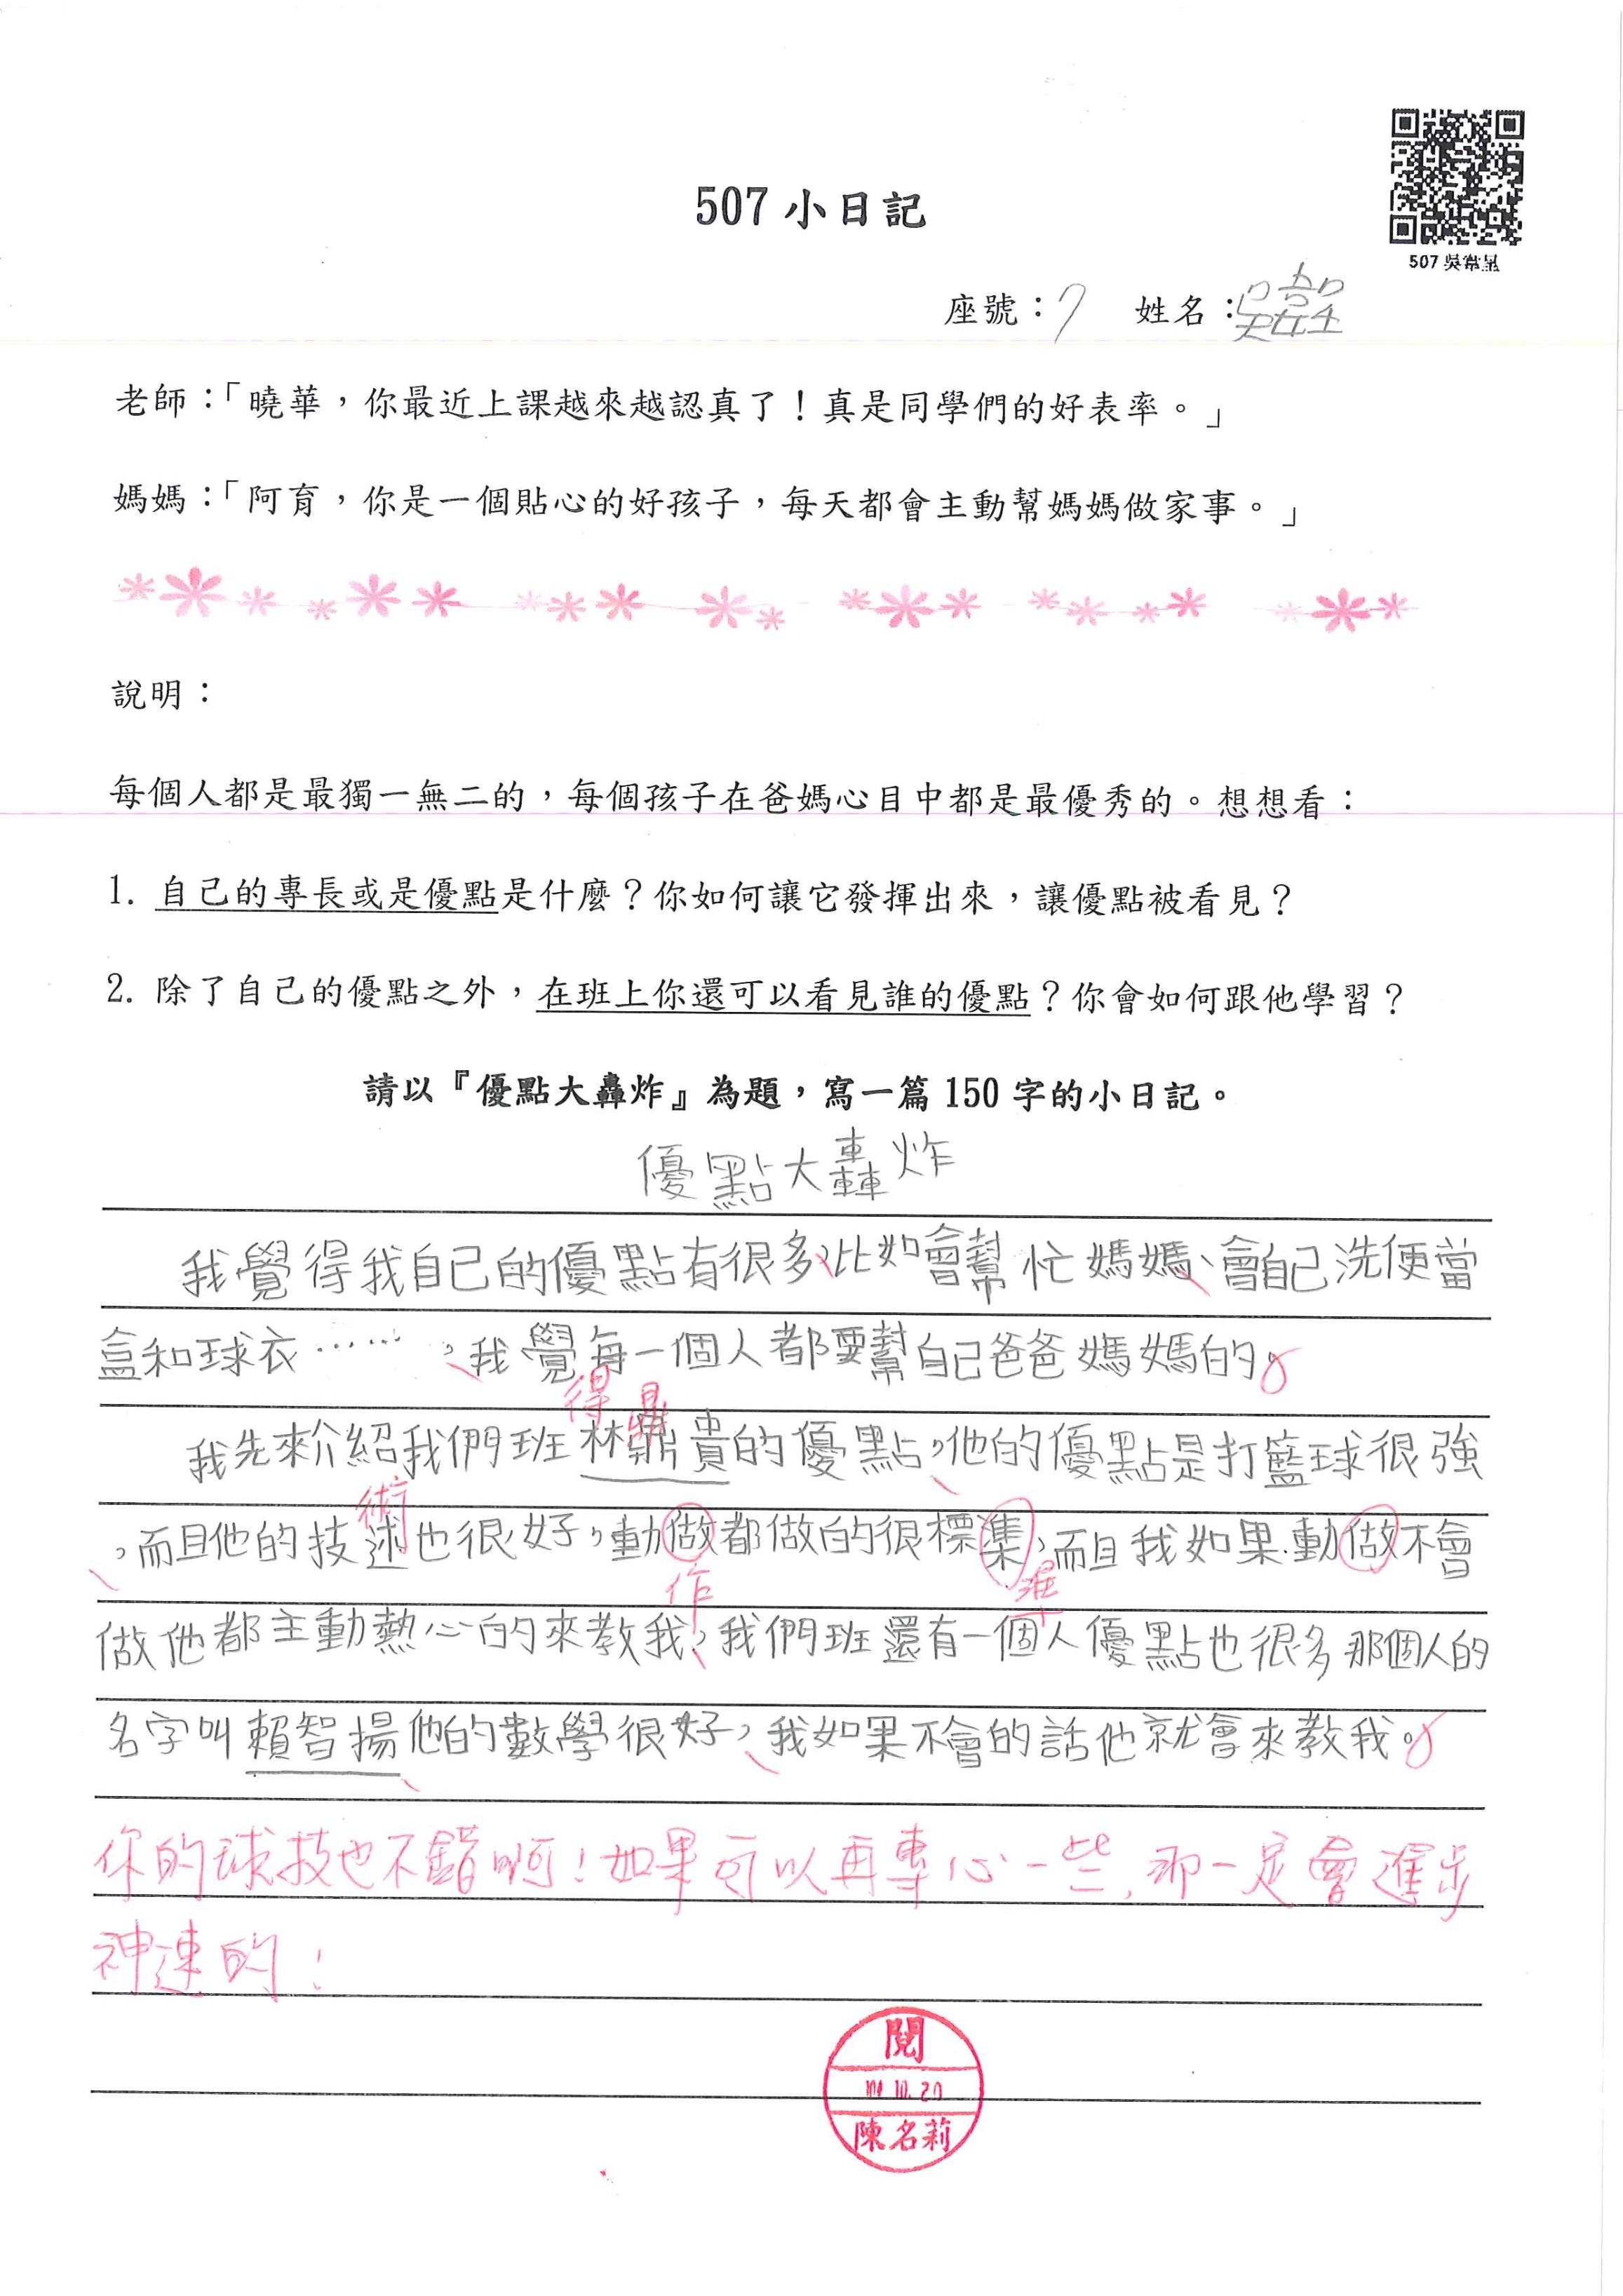 507 小日記
507 吳
座號：7 姓名：吳
老師：「曉華，你最近上課越來越認真了！真是同學們的好表率。」
媽媽：「阿育，你是一個貼心的好孩子，每天都會主動幫媽媽做家事。」
說明：
每個人都是最獨一無二的，每個孩子在爸媽心目中都是最優秀的。想想看：
1. 自己的專長或是優點是什麼？你如何讓它發揮出來，讓優點被看見？
2. 除了自己的優點之外，在班上你還可以看見誰的優點？你會如何跟他學習？
請以『優點大轟炸』為題，寫一篇 150 字的小日記。
優點大轟炸
我覺得我自己的優點有很多，比如會幫忙媽媽、會自己洗便當
盒和球衣……，我覺每一個人都要幫自己爸爸媽媽的。
得 鼎
我先來介紹我們班林鼎貴的優點，他的優點是打籃球很強
術
，而且他的技述也很好，動做都做的很標集，而且我如果動做不會
作 準
做他都主動熱心的來教我，我們班還有一個人優點也很多那個人的
名字叫賴智揚他的數學很好，我如果不會的話他就會來教我。
你的球技也不錯啊！如果可以再專心一些，那一定會進步
神速的！
閱
10.20
陳名莉